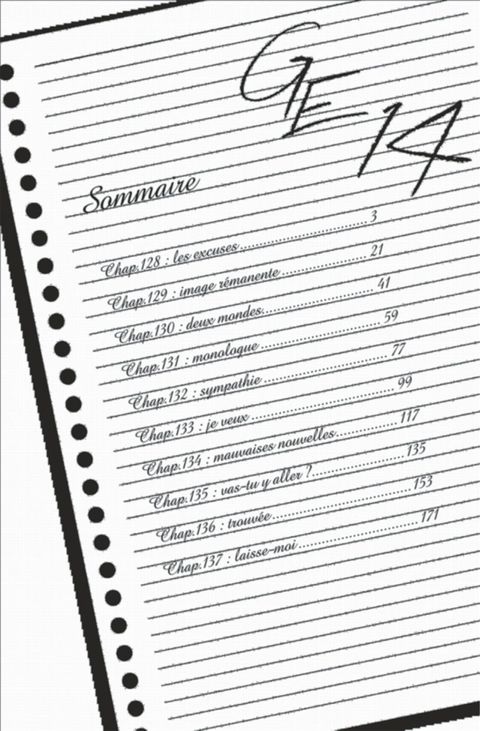 GE
14
Sommaire
Chap.128 : les excuses........................3
Chap.129 : image rémanente........................21
Chap.130 : deux mondes........................41
Chap.131 : monologue........................59
Chap.132 : sympathie........................77
Chap.133 : je veux........................99
Chap.134 : mauvaises nouvelles........................117
Chap.135 : vas-tu y aller ?........................135
Chap.136 : trouvée........................153
Chap.137 : laisse-moi........................171